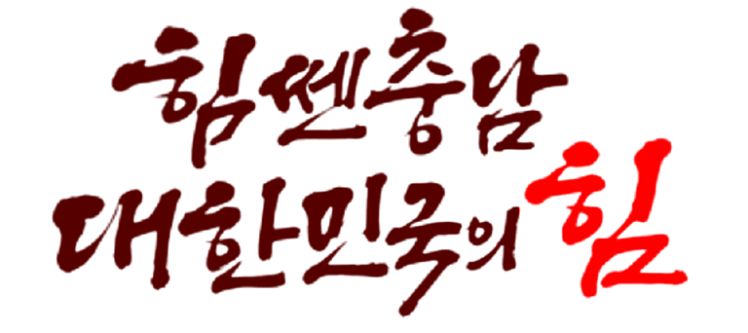 힘쎈충남
대한민국의 힘